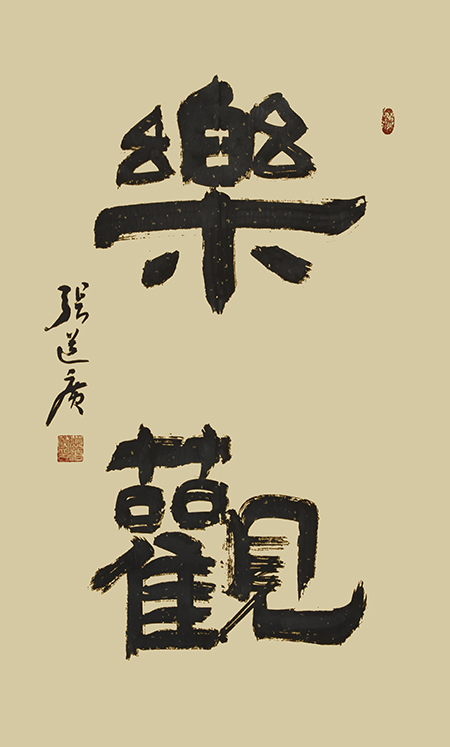 樂觀
張道廣